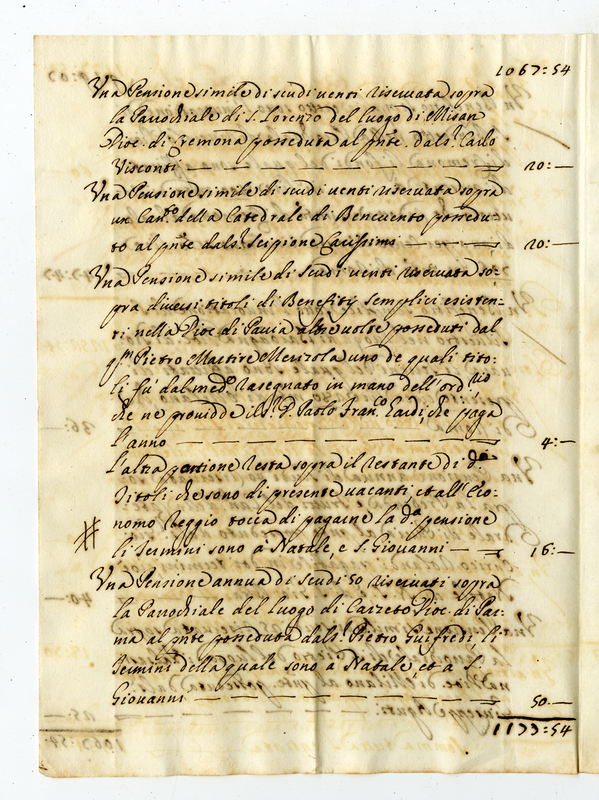 1067:54
Una Pensione simile di scudi venti riservata sopra
la Parochiale di S. Lorenzo del luogo di Misan
Dioc. di Cremona posseduta al pnte. dal Sr. Carlo
Visconti — 20:—
Una Pensione simile di scudi venti riservata sopra
un Can.to della Catedrale di Benevento possedu-
to al pnte dal Sr. Scipione Carissimi — 20:—
Una Pensione simile di scudi venti riservata so-
pra diversi titoli di Benefitij semplici esisten-
ti nella Dioc. di Pavia altre volte posseduti dal
qm. Pietro Martire Merizola uno de quali tito:
li fù dal med.o rasegnato in mano dell' ord.rio
che ne providde il Sr. D. Paolo Fran.co che paga
l'anno — 4:—
L'altra portione resta sopra il restante di d.i
Titoli che sono di presente vacanti, et all' Eco-
nomo Reggio tocca di pagarne la d.a pensione
li Termini sono à Natale, e S. Giovanni — 16:—
Una Pensione annua di scudi 50 riservati sopra
la Parochiale del luogo di Carzeto Dioc. di Par-
ma al pnte posseduta dal Sr. Pietro Guifredi, li
Termini della quale sono à Natale, et à S.
Giovanni — 50:—
1177:54